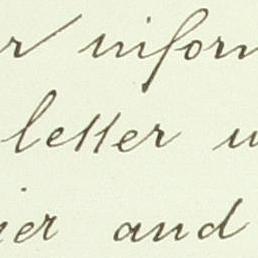 r inform
letter w
ier and